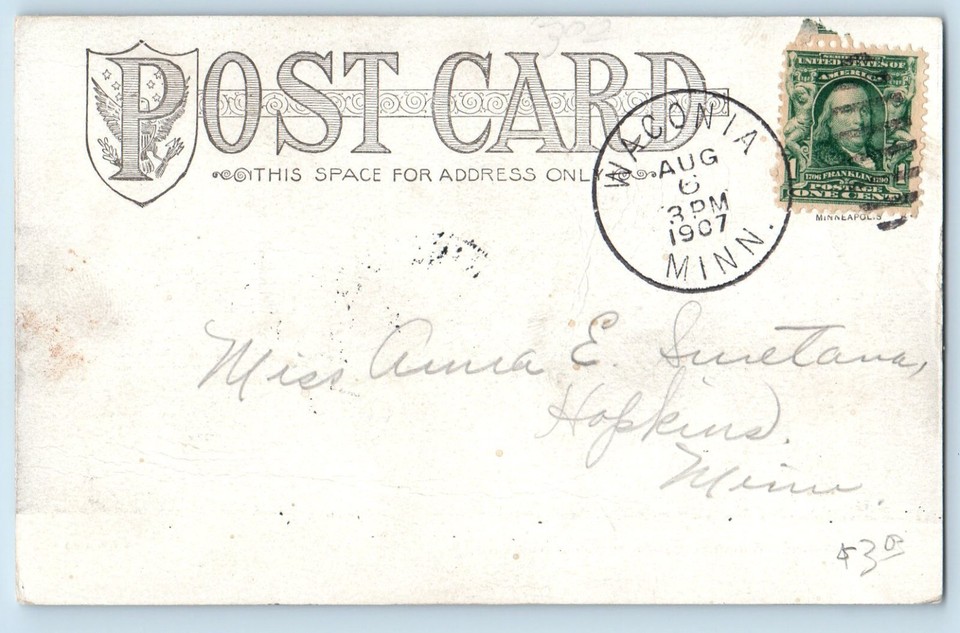 300
POST CARD
THIS SPACE FOR ADDRESS ONLY
WACONIA
AUG
6
3 PM
1907
MINN.
UNITED STATES OF
AMERICA
1 1
1706 FRANKLIN 1790
POSTAGE
ONE CENT
MINNEAPOLIS
Miss Anna E. Smetana,
Hopkins.
Minn.
$3.00